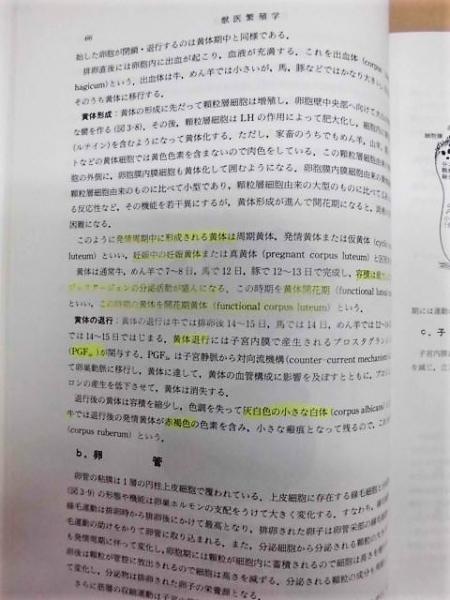 66
獣医繁殖学
始した卵胞が閉鎖・退行するのは黄体期中と同様である．
排卵直後には卵胞内に出血が起こり，血液が充満する．これを出血体 (corpus
hagicum)という．出血体は牛，めん羊では小さいが，馬，豚などではかなり大きい
そのうち黄体に移行する．
黄体形成：黄体の形成に先だって顆粒層細胞は増殖し，卵胞壁中央部へ向けて
な襞を作る(図3-8)．その後，顆粒層細胞はLHの作用によって肥大化し，細胞内に
(ルテイン)を含むようになって黄体化する．ただし，家畜のうちでもめん羊，山羊，
トなどの黄体細胞では黄色色素を含まないので肉色をしている．この顆粒層細胞由来
胞の外側に，卵胞膜内膜細胞も黄体化して囲むようになる．卵胞膜内膜細胞由来の
粒層細胞由来のものに比べて小型であり，顆粒層細胞由来の大型のものに比べて
る反応性など，その機能を若干異にするが，黄体形成が進んで開花期になると，
困難になる．
このように発情周期中に形成される黄体は周期黄体，発情黄体または仮黄体 (cyclic
luteum) といい，妊娠中の妊娠黄体または真黄体 (pregnant corpus luteum) と
黄体は通常牛，めん羊で7〜8日，馬で12日，豚で12〜13日で完成し，容積は
ジェステージェンの分泌活動が盛んになる．この時期を黄体開花期 (functional luteal
といい，この時期の黄体を開花期黄体 (functional corpus luteum) という．
黄体の退行：黄体の退行は牛では排卵後14〜15日，馬では14日，めん羊では12〜
では14〜15日ではじまる．黄体退行には子宮内膜で産生されるプロスタグランジン
(PGF₂α)が関与する．PGF₂αは子宮静脈から対向流機構(counter-current mechanism)
て卵巣動脈に移行し，黄体に達して，黄体の血管構成に影響を及ぼすとともに，プロ
ロンの産生を低下させて，黄体は消失する．
退行後の黄体は容積を縮少し，色調を失って灰白色の小さな白体 (corpus albicans)
牛では退行後の発情黄体が赤褐色の色素を含み，小さな瘢痕となって残るので，これ
(corpus ruberum) という．
b．卵管
卵管の粘膜は1層の円柱上皮細胞で覆われている．上皮細胞に存在する線毛細胞と
(図3-9) の形態や機能は卵巣ホルモンの支配をうけて大きく変化する．すなわち，
線毛運動は排卵時から排卵後にかけて最高となり，排卵された卵子は卵管采部の線毛
毛運動の助けをかりて卵管に取り込まれる．また，分泌細胞から分泌される顆粒の
も発情周期に伴って変化し，卵胞期には顆粒が細胞内に蓄積されるので細胞は高さを
卵後は顆粒が管腔に放出されるので細胞は高さを減ずる．分泌される顆粒の成分
て変化し，分泌物は排卵された卵子の栄養源となる．
さらに筋層の収縮運動は子宮
期には運動
c．子
子宮内膜
を減じ，立